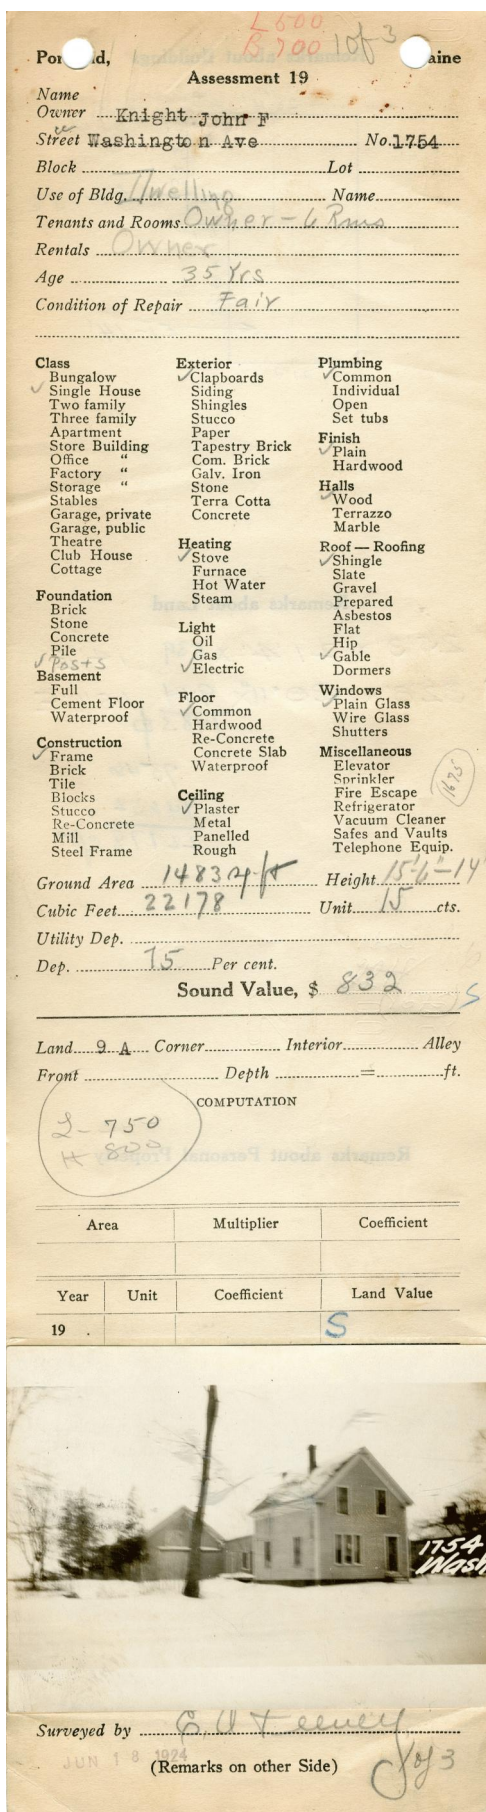 L 600
B 700
1 of 3
Portland, Maine
Assessment 19
Name
Owner Knight John F
Street W Washington Ave No. 1754
Block Lot
Use of Bldg. Dwelling Name
Tenants and Rooms Owner - 6 Rms
Rentals Owner
Age 35 Yrs
Condition of Repair Fair
Class
✓ Bungalow
✓ Single House
Two family
Three family
Apartment
Store Building
Office "
Factory "
Storage "
Stables
Garage, private
Garage, public
Theatre
Club House
Cottage
Foundation
Brick
Stone
Concrete
Pile
✓ Posts
Basement
Full
Cement Floor
Waterproof
Construction
✓ Frame
Brick
Tile
Blocks
Stucco
Re-Concrete
Mill
Steel Frame
Exterior
✓ Clapboards
Siding
Shingles
Stucco
Paper
Tapestry Brick
Com. Brick
Galv. Iron
Stone
Terra Cotta
Concrete
Heating
✓ Stove
Furnace
Hot Water
Steam
Light
Oil
Gas
✓ Electric
Floor
✓ Common
Hardwood
Re-Concrete
Concrete Slab
Waterproof
Ceiling
✓ Plaster
Metal
Panelled
Rough
Plumbing
✓ Common
Individual
Open
Set tubs
Finish
✓ Plain
Hardwood
Halls
✓ Wood
Terrazzo
Marble
Roof — Roofing
✓ Shingle
Slate
Gravel
Prepared
Asbestos
Flat
Hip
✓ Gable
Dormers
Windows
✓ Plain Glass
Wire Glass
Shutters
Miscellaneous
Elevator
Sprinkler
Fire Escape
Refrigerator
Vacuum Cleaner
Safes and Vaults
Telephone Equip.
1675
Ground Area 1483 sq ft Height 15'-6"-14'
Cubic Feet 22178 Unit 15 cts.
Utility Dep.
Dep. 75 Per cent.
Sound Value, $ 832
S
Land 9 A Corner Interior Alley
Front Depth = ft.
COMPUTATION
L- 750
H 800
Area Multiplier Coefficient
Year Unit Coefficient Land Value
19 . S
1754
Wash
Surveyed by E. W. Feeney
JUN 18 1924
(Remarks on other Side)
1 of 3